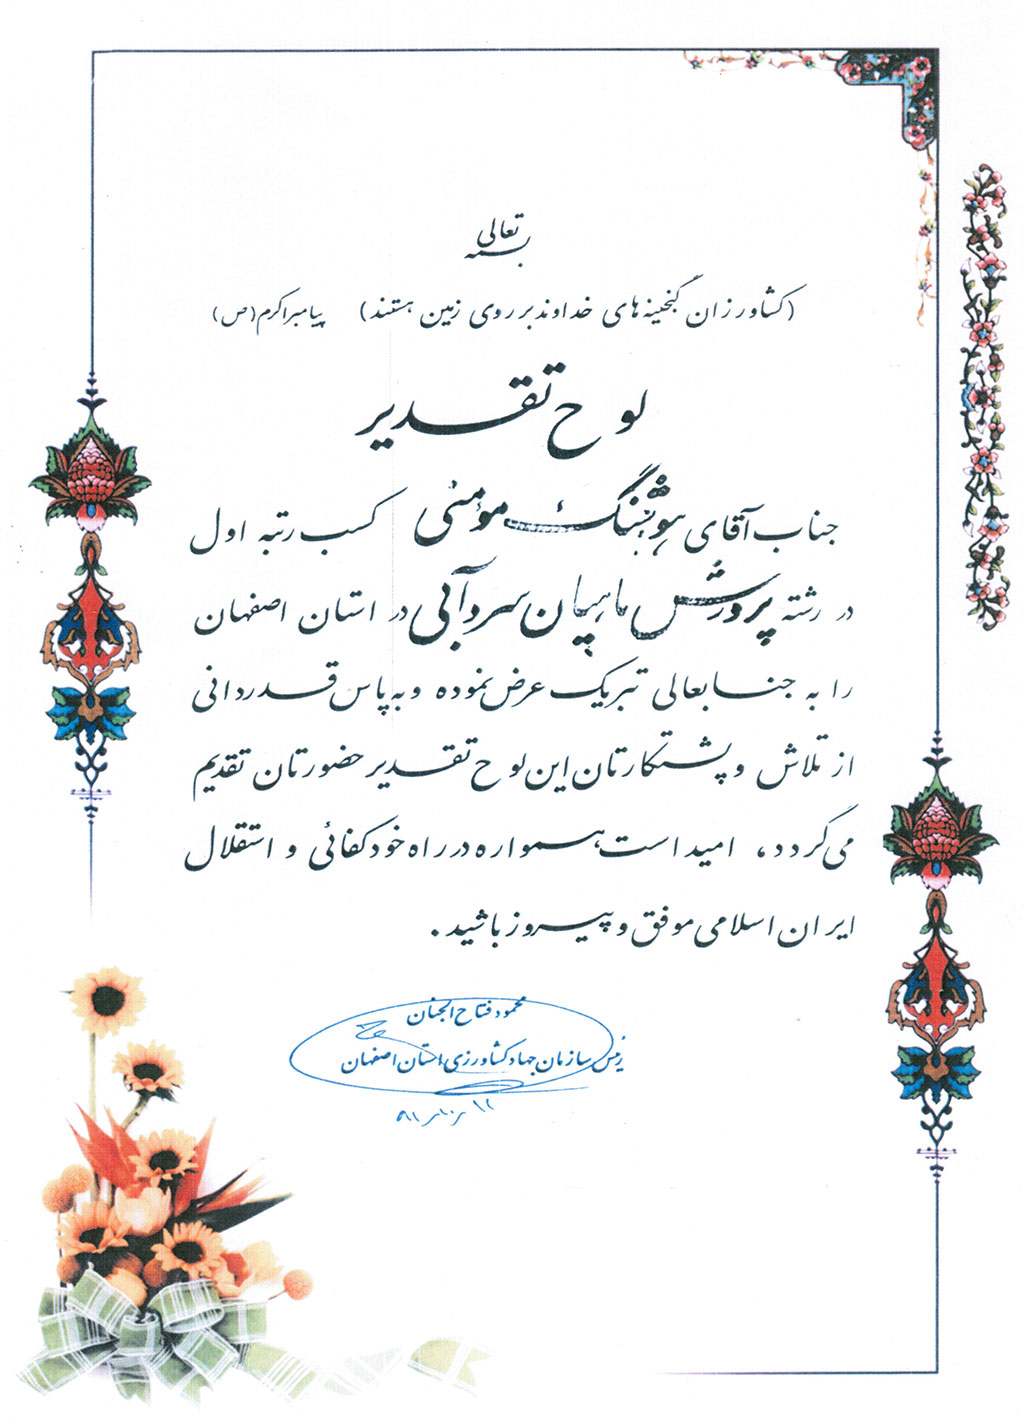 بسمه تعالی
(کشاورزان گنجینه های خداوند بر روی زمین هستند) پیامبر اکرم (ص)
لوح تقدیر
جناب آقای هوشنگ مؤمنی کسب رتبه اول
در رشته پرورش ماهیان سردآبی در استان اصفهان
را به جنابعالی تبریک عرض نموده و به پاس قدردانی
از تلاش و پشتکارتان این لوح تقدیر حضورتان تقدیم
می گردد، امید است همواره در راه خودکفائی و استقلال
ایران اسلامی موفق و پیروز باشید.
محمود فتاح الجنان
رئیس سازمان جهاد کشاورزی استان اصفهان